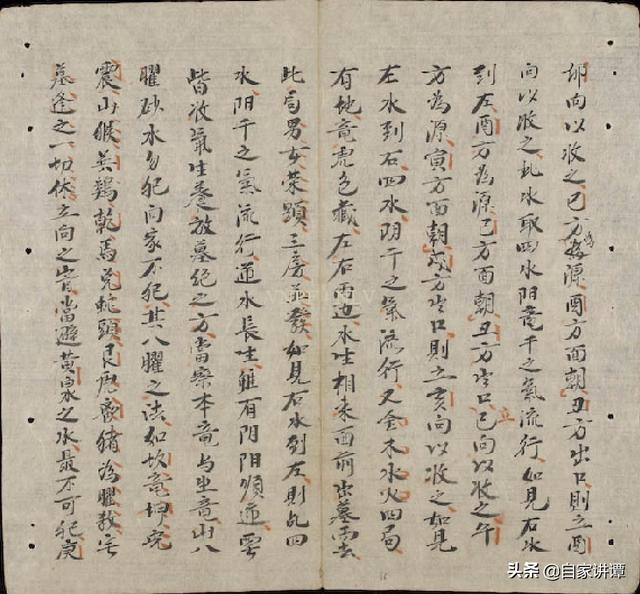 卯向以收之巳方為源酉方面朝丑方出口則立酉
向以收之此水取四水阴竜干之氣流行如見右水
到左酉方為源巳方面朝丑方出口立巳向以收之午
方為源寅方面朝戌方出口則立亥向以收之如見
左水到右四水阴干之氣流行又金木水火四局
有地竜虎包藏左右兩边水生相未面前出墓雲
此局男女荣顯三房並發如見右水到左則乩四
水阴干之氣流行逆水長生雖有阴阳順逆要
皆收氣生養放墓絕之方當察本竜与坐竜山八
曜砂水勿犯向家不犯其八曜之法如坎竜坤兎
震山猴巽鷄乾馬兌蛇頭艮虎离猪為曜煞宅
墓逢之一切休立向之皆當避黄泉之水最不可犯庚
头条 @自家讲谭